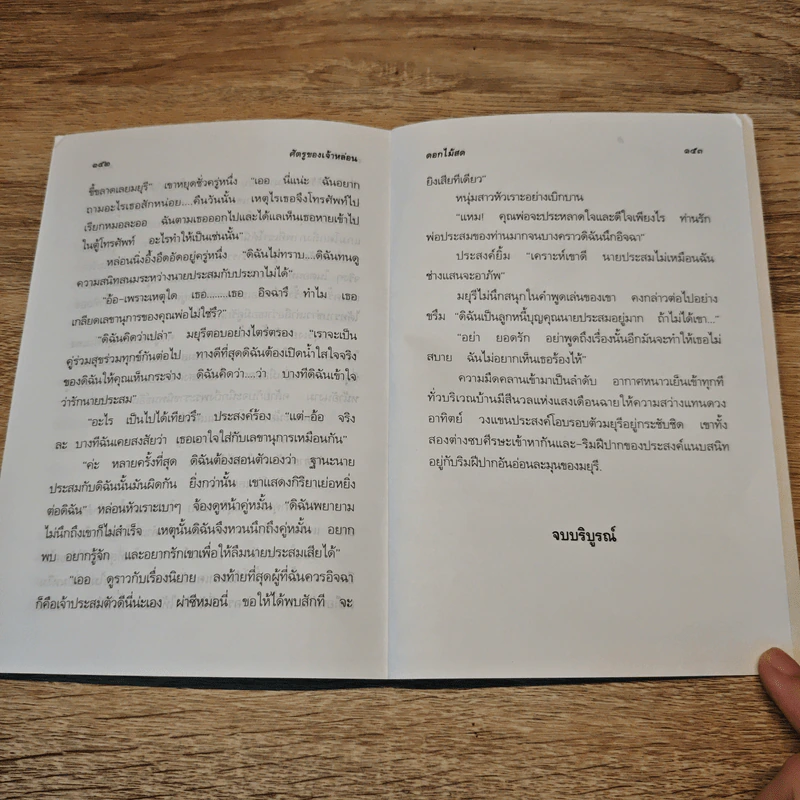 ๑๔๒ ศัตรูของเจ้าหล่อน
ขี้ขลาดเลยมยุรี” เขาหยุดชั่วครู่หนึ่ง “เออ นี่แน่ะ ฉันอยาก
ถามอะไรเธอสักหน่อย....คืนวันนั้น เหตุไรเธอจึงโทรศัพท์ไป
เรียกหมอละออ ฉันตามเธอออกไปและได้แลเห็นเธอหายเข้าไป
ในตู้โทรศัพท์ อะไรทำให้เป็นเช่นนั้น”
หล่อนนิ่งอึ้งอึดอัดอยู่ครู่หนึ่ง “ดิฉันไม่ทราบ....ดิฉันทนดู
ความสนิทสนมระหว่างนายประสมกับประภาไม่ได้”
“อ้อ-เพราะเหตุใด เธอ........เธอ อิจฉารึ ทำไม เธอ
เกลียดเลขานุการของคุณพ่อไม่ใช่รึ?”
“ดิฉันคิดว่าเปล่า” มยุรีตอบอย่างไตร่ตรอง “เราจะเป็น
คู่ร่วมสุขร่วมทุกข์กันต่อไป ทางดีที่สุดดิฉันต้องเปิดน้ำใสใจจริง
ของดิฉันให้คุณเห็นกระจ่าง ดิฉันคิดว่า....ว่า บางทีดิฉันเข้าใจ
ว่ารักนายประสม”
“อะไร เป็นไปได้เทียวรึ” ประสงค์ร้อง “แต่-อ้อ จริง
ละ บางทีฉันเคยสงสัยว่า เธอเอาใจใส่กับเลขานุการเหมือนกัน”
“ค่ะ หลายครั้งที่สุด ดิฉันต้องสอนตัวเองว่า ฐานะนาย
ประสมกับดิฉันนั้นมันผิดกัน ยิ่งกว่านั้น เขาแสดงกิริยาเย่อหยิ่ง
ต่อดิฉัน” หล่อนหัวเราะเบาๆ จ้องดูหน้าคู่หมั้น “ดิฉันพยายาม
ไม่นึกถึงเขาก็ไม่สำเร็จ เหตุนั้นดิฉันจึงหวนนึกถึงคู่หมั้น อยาก
พบ อยากรู้จัก และอยากรักเขาเพื่อให้ลืมนายประสมเสียได้”
“เออ ดูราวกับเรื่องนิยาย ลงท้ายที่สุดผู้ที่ฉันควรอิจฉา
ก็คือเจ้าประสมตัวดีนี่น่ะเอง ผ่าซีหมอนี่ ขอให้ได้พบสักที จะ
ดอกไม้สด ๑๔๓
ยิงเสียทีเดียว”
หนุ่มสาวหัวเราะอย่างเบิกบาน
“แหม! คุณพ่อจะประหลาดใจและดีใจเพียงไร ท่านรัก
พ่อประสมของท่านมากจนบางคราวดิฉันนึกอิจฉา”
ประสงค์ยิ้ม “เคราะห์เขาดี นายประสมไม่เหมือนฉัน
ช่างแสนจะอาภัพ”
มยุรีไม่นึกสนุกในคำพูดเล่นของเขา คงกล่าวต่อไปอย่าง
ขรึม “ดิฉันเป็นลูกหนี้บุญคุณนายประสมอยู่มาก ถ้าไม่ได้เขา...”
“อย่า ยอดรัก อย่าพูดถึงเรื่องนั้นอีกมันจะทำให้เธอไม่
สบาย ฉันไม่อยากเห็นเธอร้องไห้”
ความมืดคลานเข้ามาเป็นลำดับ อากาศหนาวเย็นเข้าทุกที
ทั่วบริเวณบ้านมีสีนวลแห่งแสงเดือนฉายให้ความสว่างแทนดวง
อาทิตย์ วงแขนประสงค์โอบรอบตัวมยุรีอยู่กระชับชิด เขาทั้ง
สองต่างซบศีรษะเข้าหากันและ-ริมฝีปากของประสงค์แนบสนิท
อยู่กับริมฝีปากอันอ่อนละมุนของมยุรี.
จบบริบูรณ์